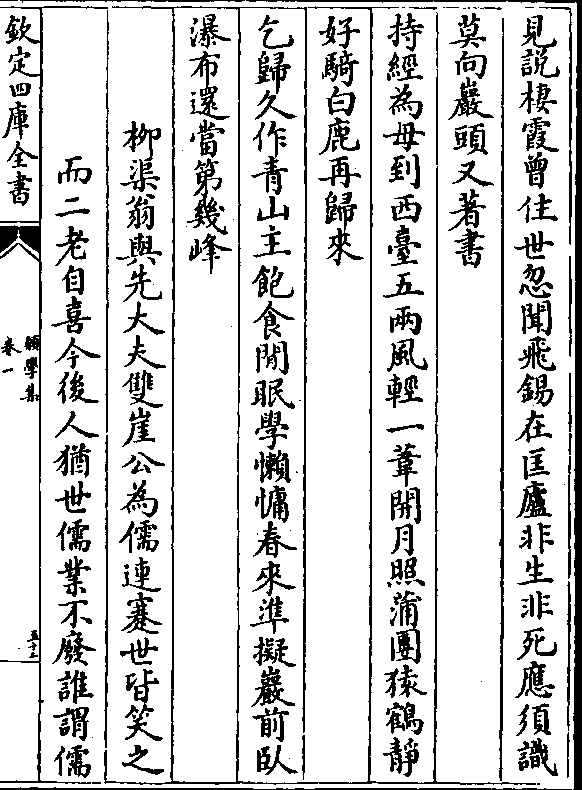 見説棲霞曾住世忽聞飛錫在匡廬非生非死應須識
莫向巖頭又著書
持經為母到西臺五兩風輕一葦開月照蒲團猿鶴靜
好騎白鹿再歸來
乞歸久作青山主飽食閒眠學懶慵春來準擬巖前臥
瀑布還當第幾峰
柳渠翁與先大夫雙崖公為儒連蹇世皆笑之
而二老自喜今後人猶世儒業不廢誰謂儒
欽定四庫全書
願學集
卷一
五十三